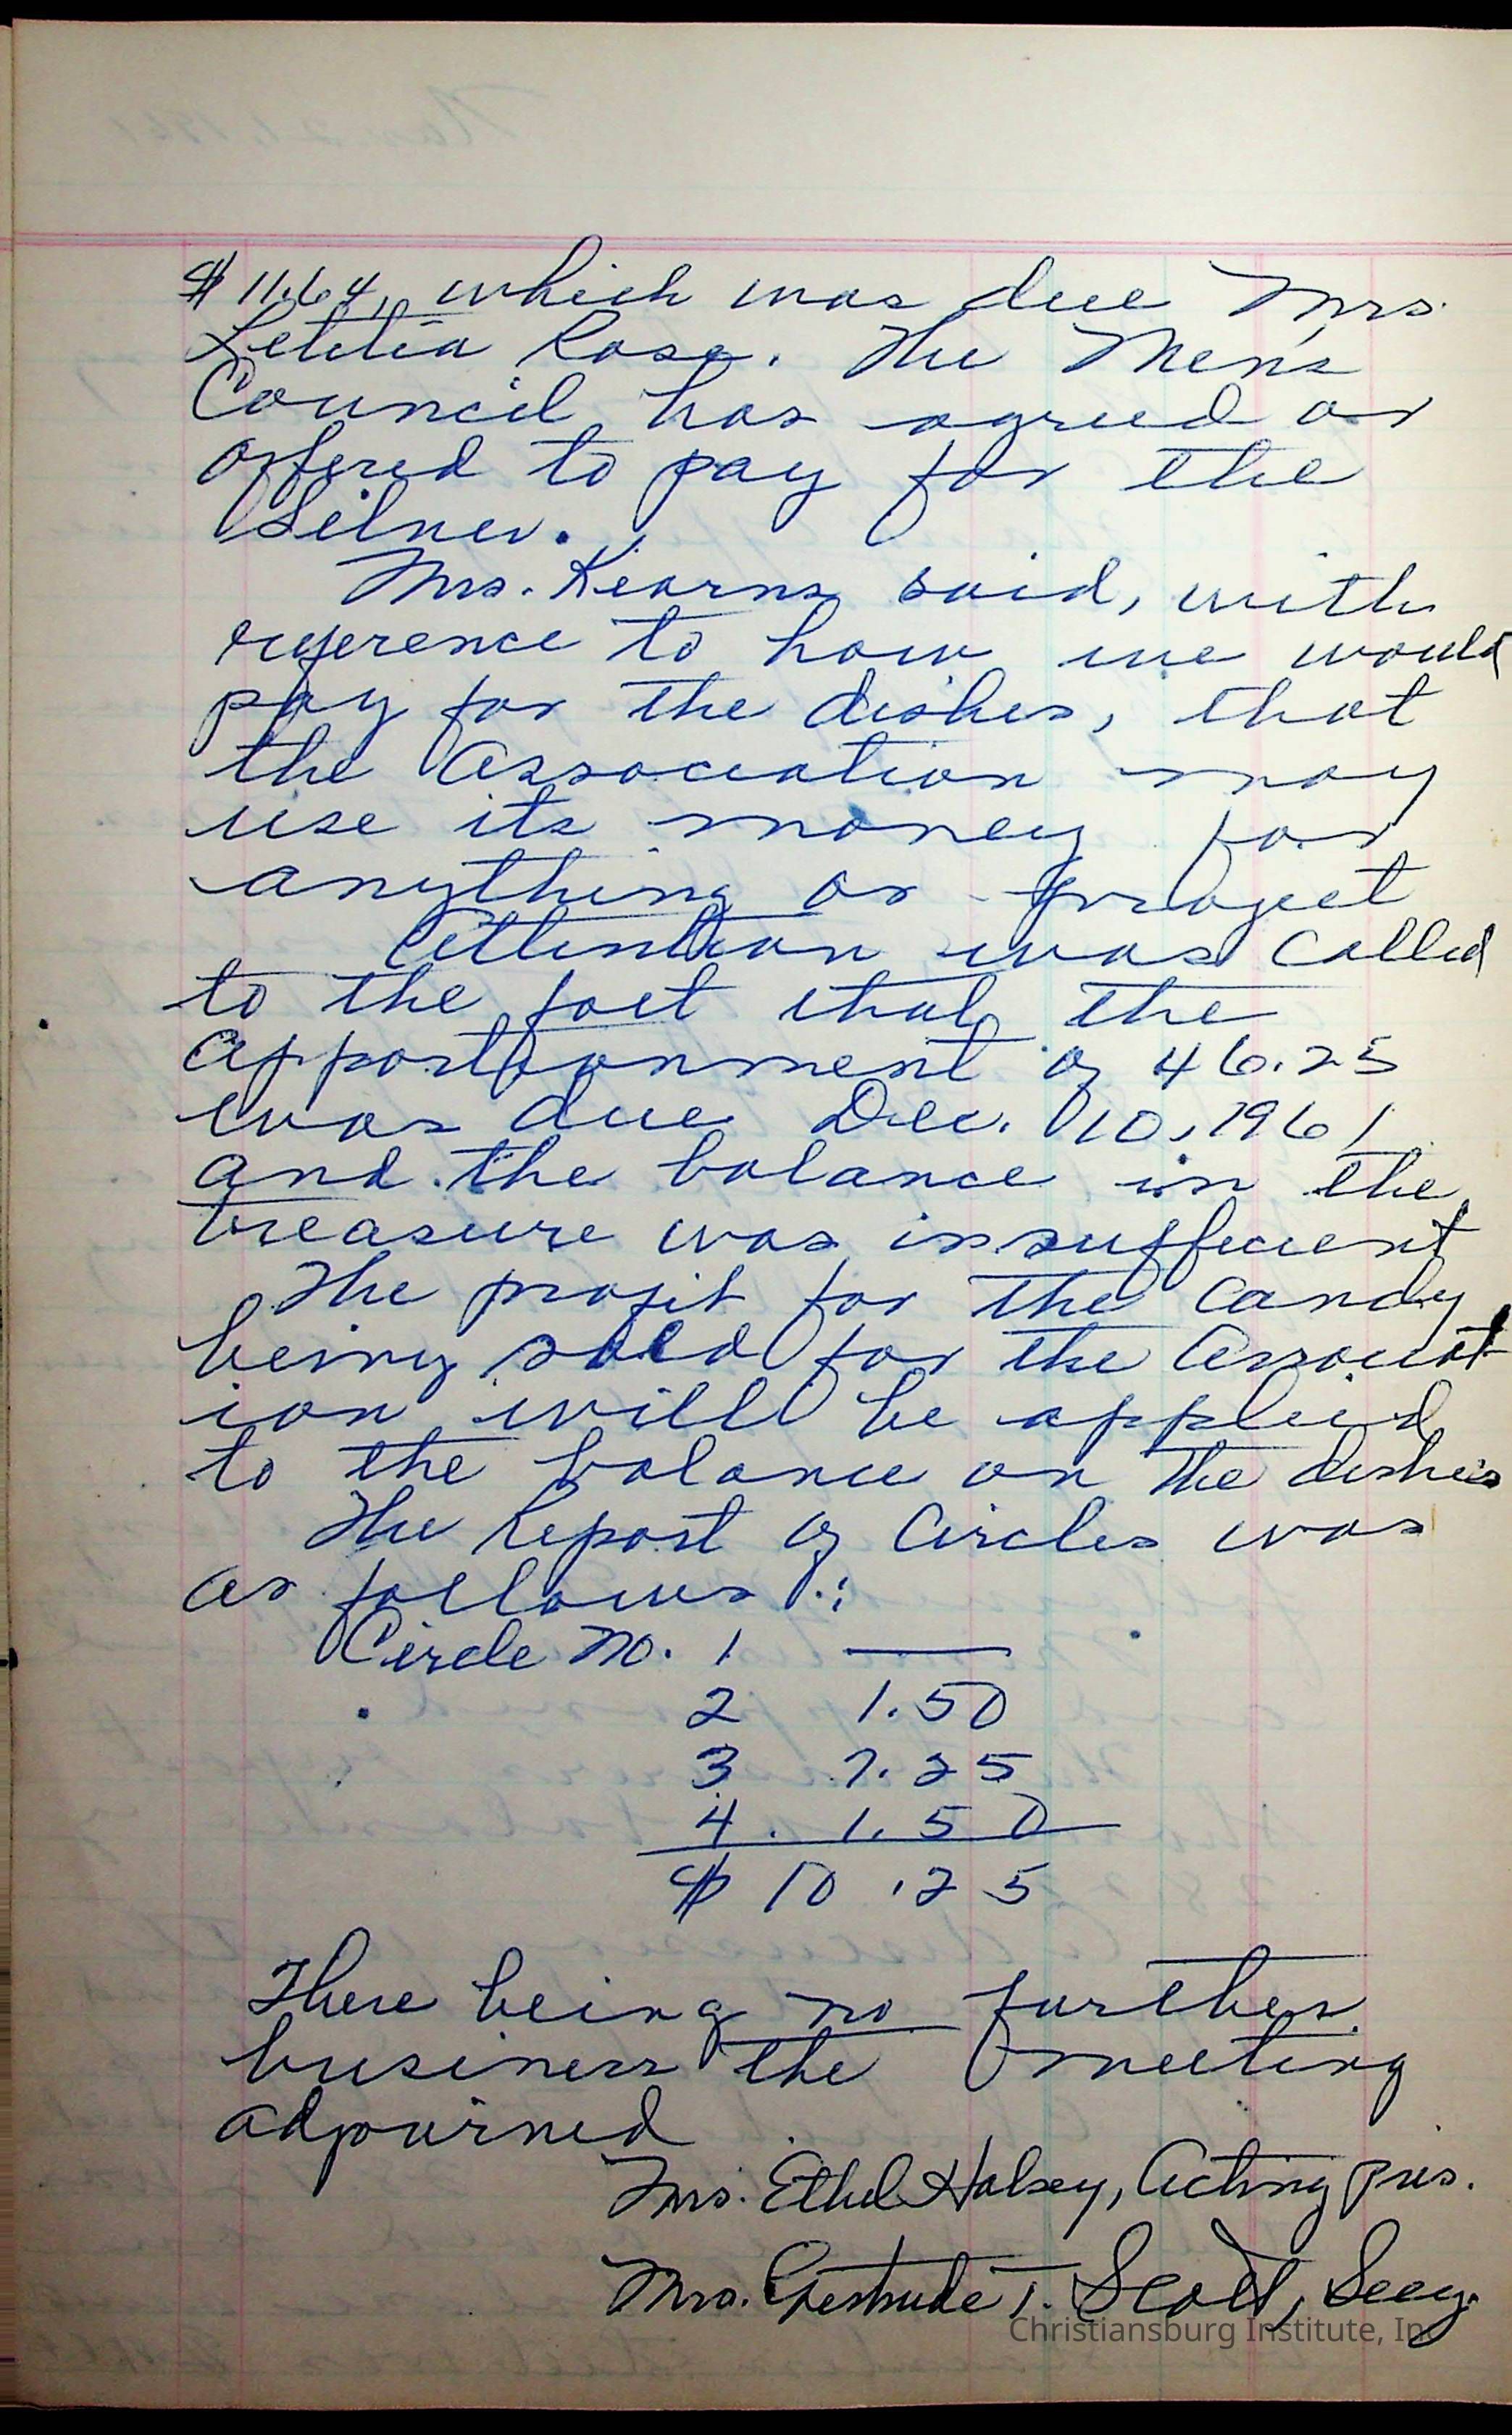 $11.64, which was due Mrs.
Letitia Rose. The Men's
Council has agreed or
offered to pay for the
Silver.
Mrs. Kearns said, with
reference to how we would
pay for the dishes, that
the Association may
use its money for
anything or project
Attention was called
to the fact that the
apportionment of 46.25
was due Dec. 10, 1961
and the balance in the
treasure was insufficient
The profit for the candy
being sold for the Associat
ion will be applied
to the balance on the dishes
The Report of Circles was
as follows:
Circle No. 1 —
2 1.50
3 7.25
4. 1.50
$ 10.25
There being no further
business the meeting
adjourned
Mrs. Ethel Halsey, Acting Pres.
Mrs. Gertrude T. Scott, Secy.
Christiansburg Institute, Inc